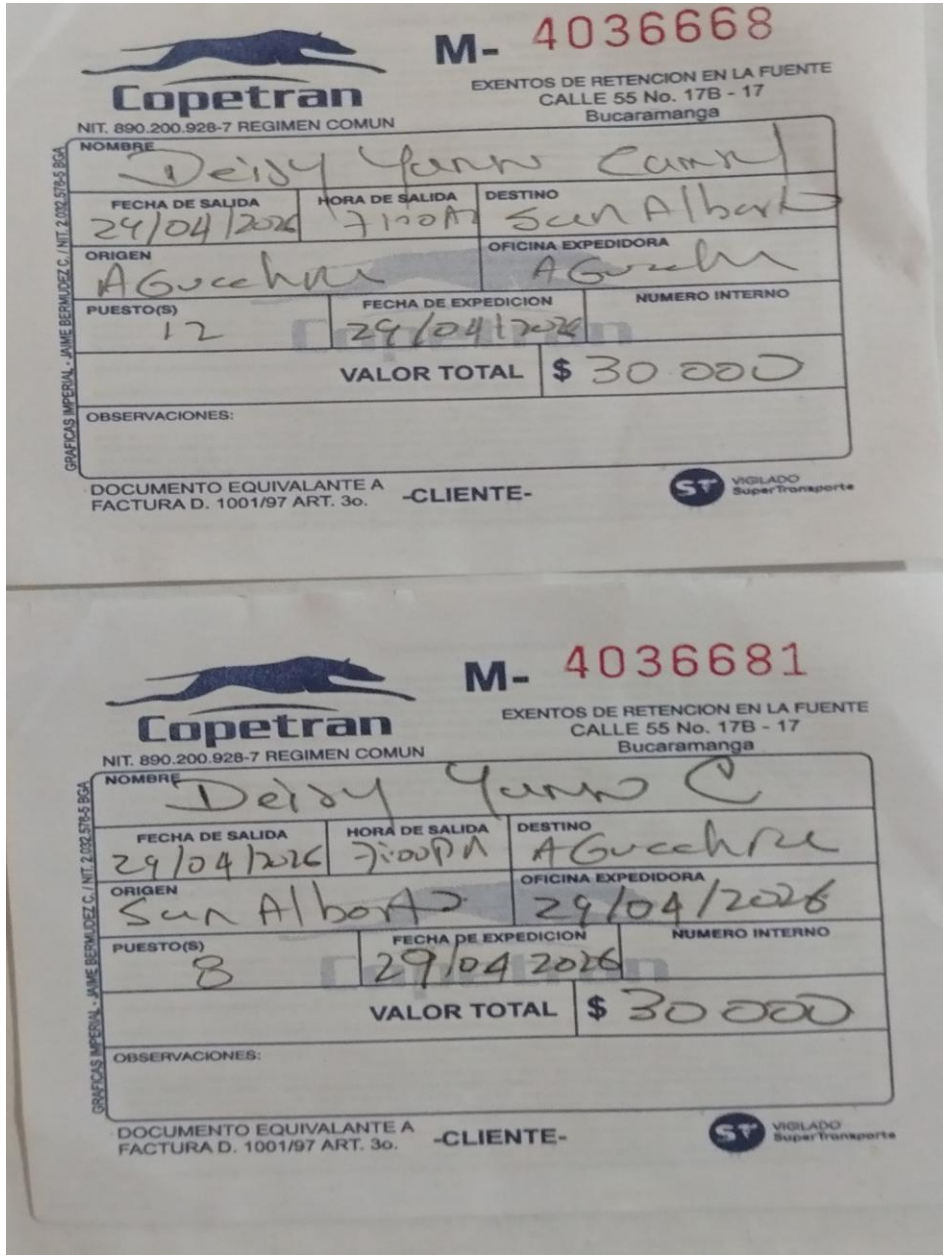 Copetran
M- 4036668
EXENTOS DE RETENCION EN LA FUENTE
CALLE 55 No. 17B - 17
Bucaramanga
NIT. 890.200.928-7 REGIMEN COMUN
GRAFICAS IMPERIAL - JAIME BERMUDEZ C. / NIT. 2.032.578-5 BGA
NOMBRE
Deisy
FECHA DE SALIDA HORA DE SALIDA DESTINO
29/04/2026 San Alberto
ORIGEN OFICINA EXPEDIDORA
PUESTO(S) FECHA DE EXPEDICION NUMERO INTERNO
12 29/04/2026
Copetran
VALOR TOTAL $ 30.000
OBSERVACIONES:
DOCUMENTO EQUIVALANTE A
FACTURA D. 1001/97 ART. 3o.
-CLIENTE-
ST VIGILADO
SuperTransporte
Copetran
M- 4036681
EXENTOS DE RETENCION EN LA FUENTE
CALLE 55 No. 17B - 17
Bucaramanga
NIT. 890.200.928-7 REGIMEN COMUN
GRAFICAS IMPERIAL - JAIME BERMUDEZ C. / NIT. 2.032.578-5 BGA
NOMBRE
Deisy C
FECHA DE SALIDA HORA DE SALIDA DESTINO
29/04/2026 7:00PM
ORIGEN OFICINA EXPEDIDORA
San Alberto 29/04/2026
PUESTO(S) FECHA DE EXPEDICION NUMERO INTERNO
8 29/04 2026
Copetran
VALOR TOTAL $ 30000
OBSERVACIONES:
DOCUMENTO EQUIVALANTE A
FACTURA D. 1001/97 ART. 3o.
-CLIENTE-
ST VIGILADO
SuperTransporte